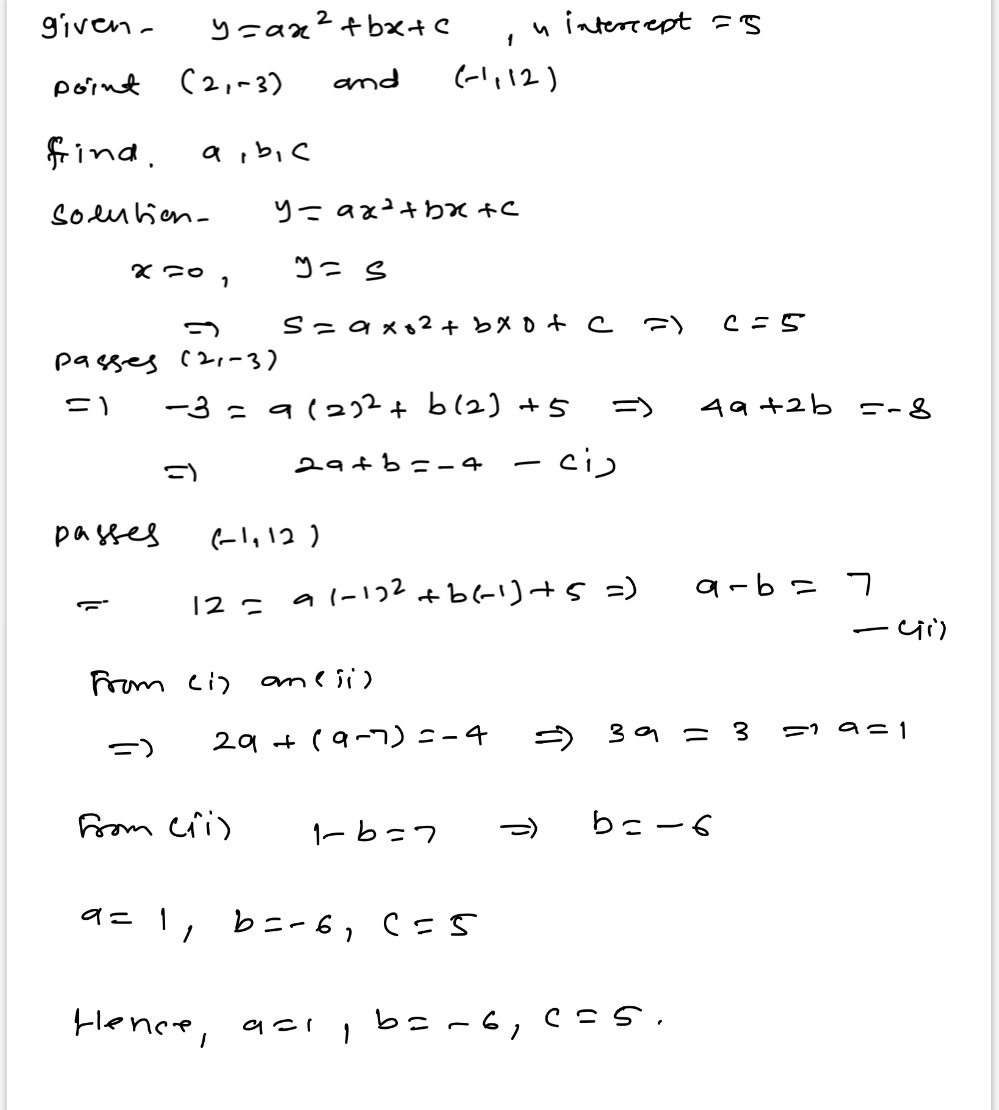 given- y=ax²+bx+c , y intercept =5
point (2,-3) and (-1,12)
find. a,b,c
solution- y=ax²+bx+c
x=0, y=5
=> 5=a×0²+b×0+c => c=5
passes (2,-3)
=> -3=a(2)²+b(2)+5 => 4a+2b=-8
=> 2a+b=-4 -(i)
passes (-1,12)
= 12=a(-1)²+b(-1)+5 => a-b=7
-(ii)
From (i) an(ii)
=> 2a+(a-7)=-4 => 3a=3 => a=1
From (ii) 1-b=7 => b=-6
a=1, b=-6, c=5
Hence, a=1, b=-6, c=5.